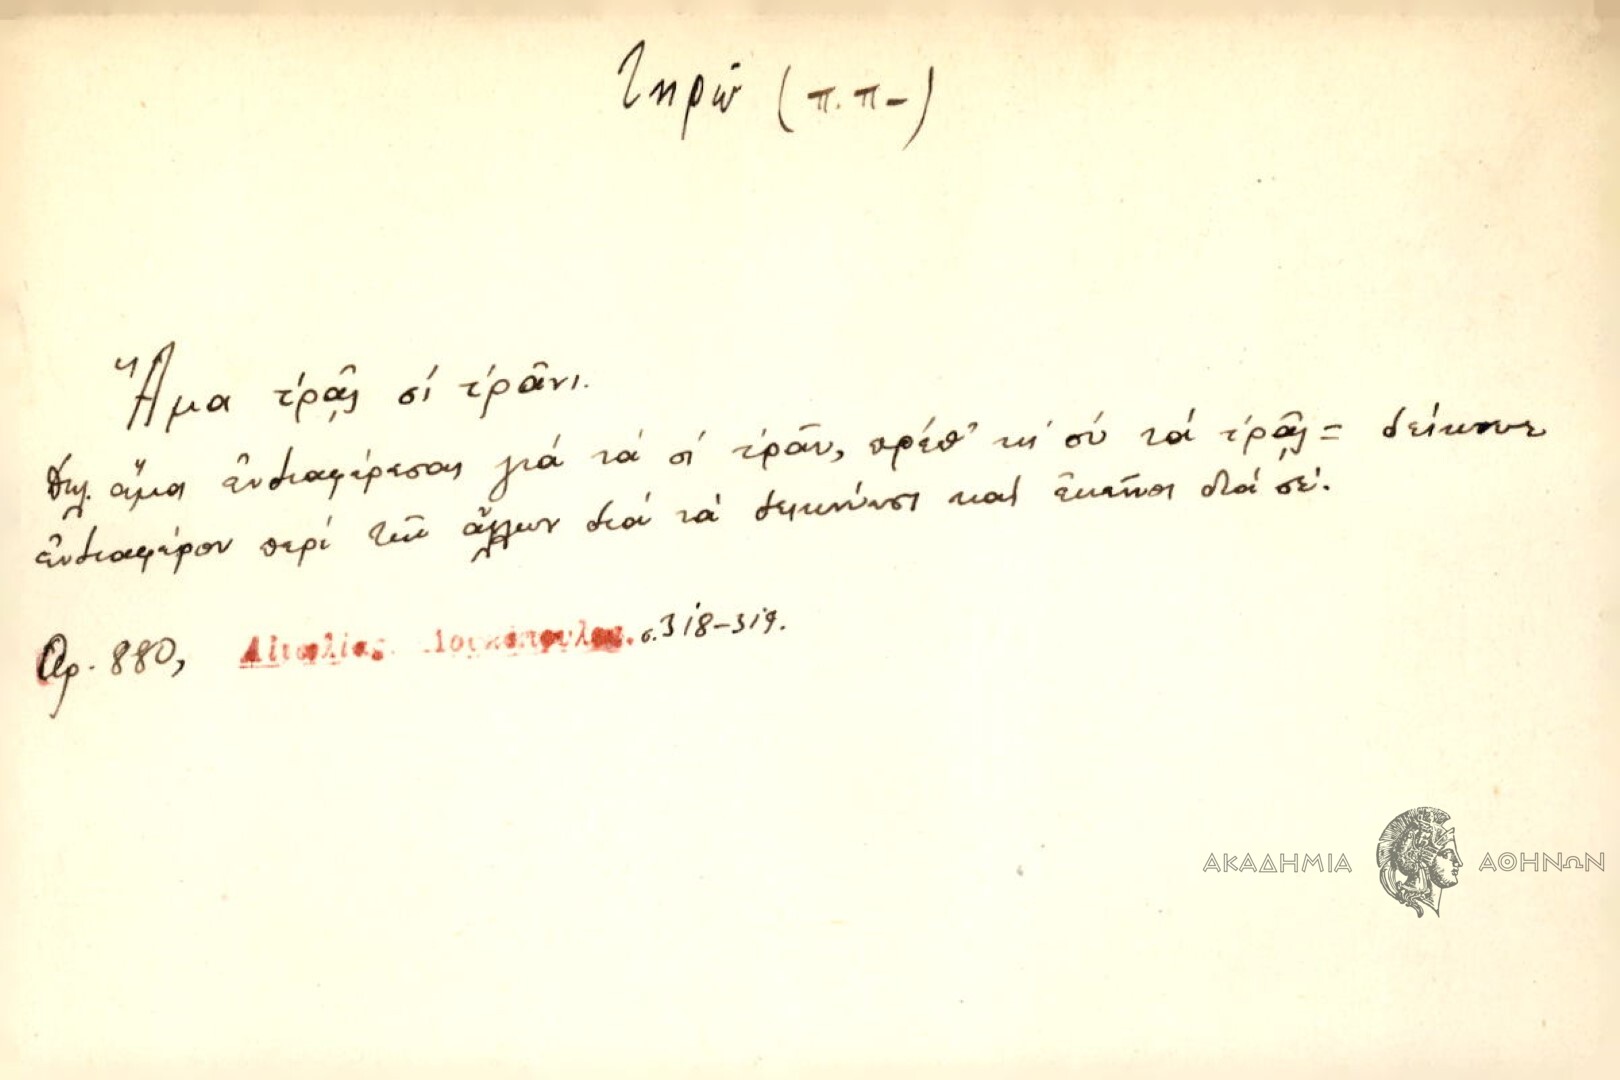 Τηρῶ (π.π-)
Ἅμα τ'ρᾷς σί τ'ρᾶνι.
δηλ. ἅμα ἐνδιαφέρεσαι γιά νά σί τ'ρᾶν, πρέπ' κι' σύ νά τ'ρᾷς = δείκνυε
ἐνδιαφέρον περί τῶν ἄλλων διά νά δεικνύωσι καί ἐκεῖνοι διά σέ.
Ἀρ. 880, Αἰτωλίας. Λουκόπουλου. σ. 318-319.
ΑΚΑΔΗΜΙΑ ΑΘΗΝΩΝ